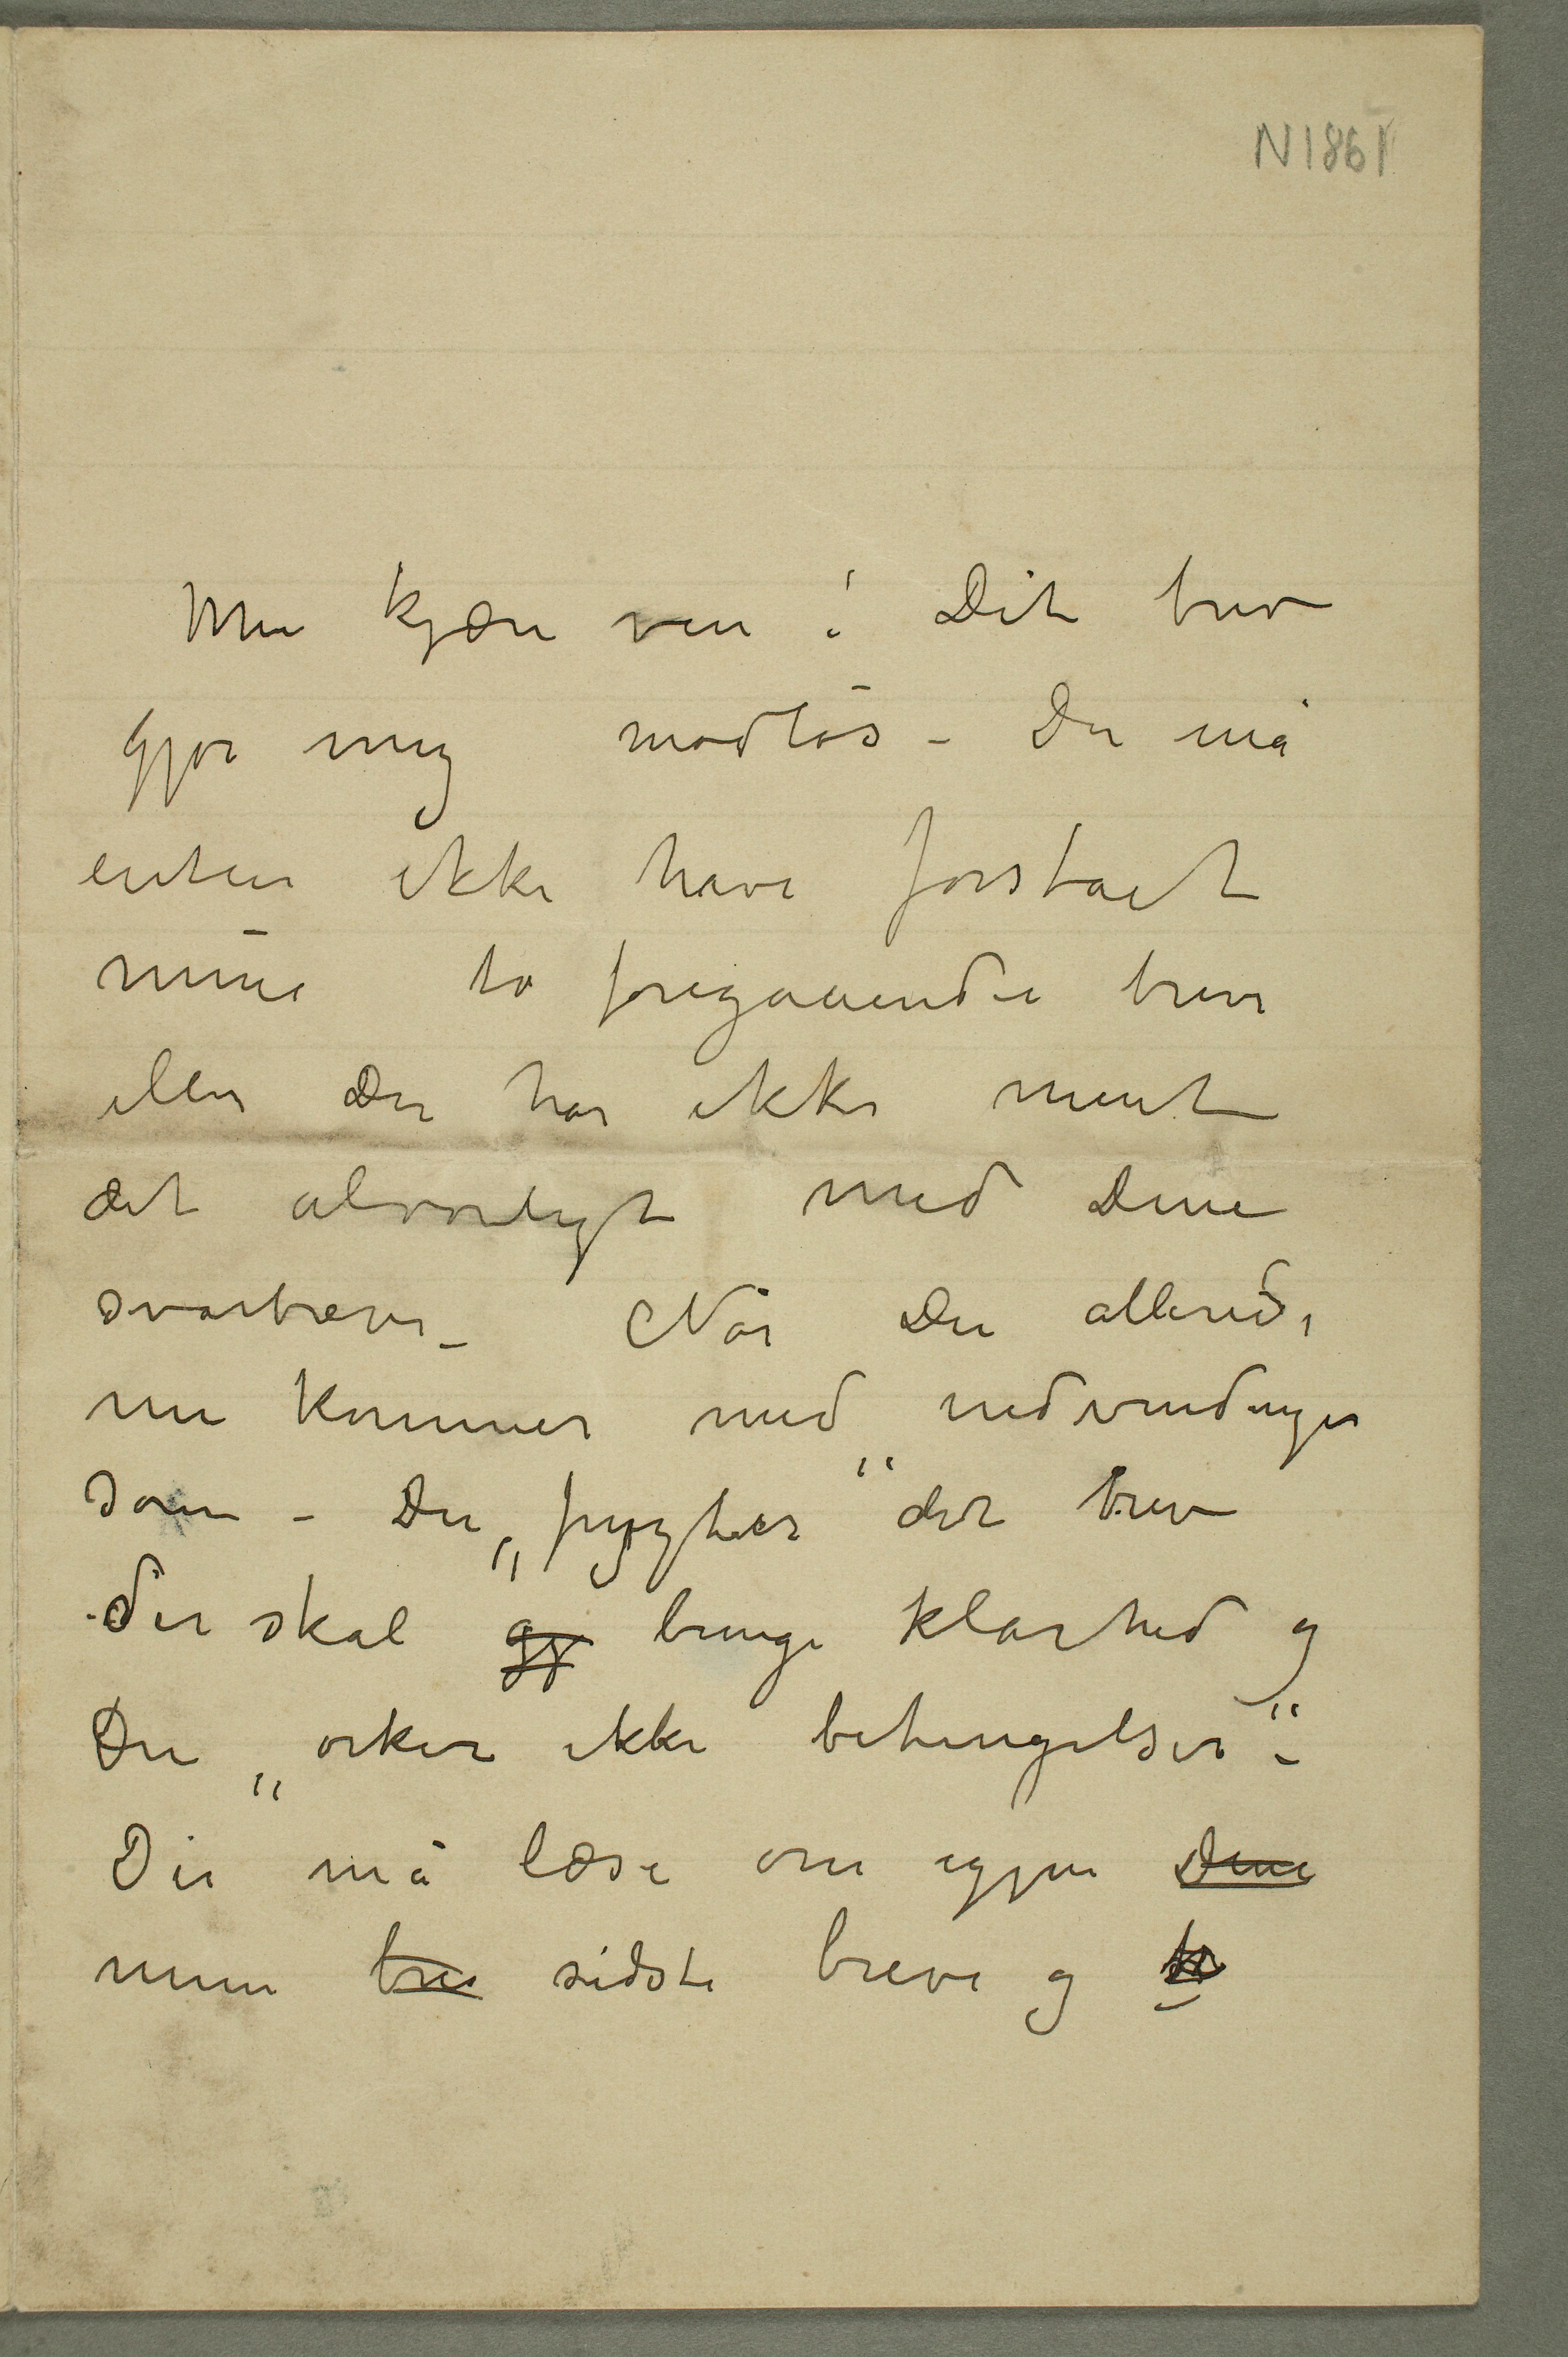 N 1861
Min kjære ven! Dit brev
gjør mig modløs – Du må
enten ikke have forstaet
mine to foregaaende breve
eller Du har ikke ment
det alvorligt med Dine
svarbreve – Når Du allerede
nu kommer med vendinger
som – Du „frygter“ det brev
der skal gj bringe klarhed og
Du „orker ikke betingelser“ –
Du må læse om igjen Dine
mine bre sidste breve og